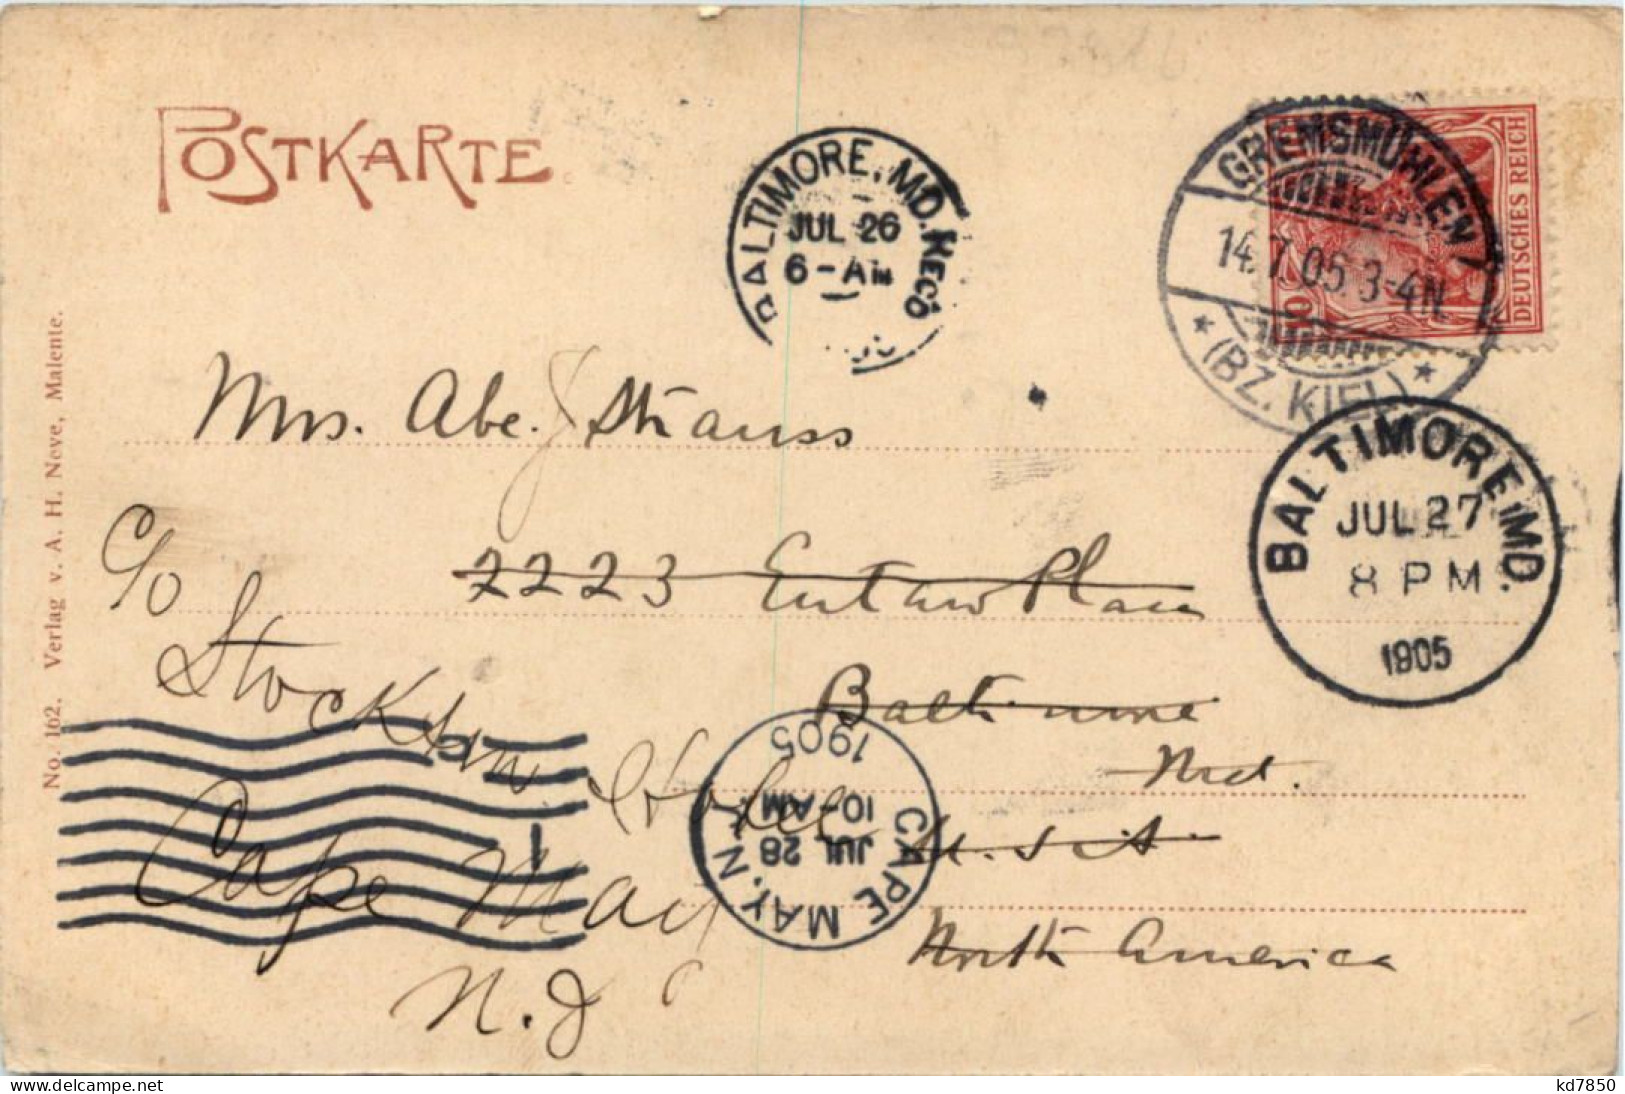 POSTKARTE
BALTIMORE, MD. REC'D
JUL 26
6-AM
GREMSMÜHLEN
14.7.05. 3-4N.
* (BZ. KIEL) *
DEUTSCHES REICH
10
BALTIMORE, MD.
JUL 27
8 PM
1905
Mrs. Abe. J Strauss
2223 Eutaw Place
Baltimore
Md.
U.S.A.
North America
c/o
Stockton Hotel
Cape May
N.J
CAPE MAY, N.J.
JUL 28
10-AM
1905
1
No. 162. Verlag v. A. H. Neve, Malente.
kd7850